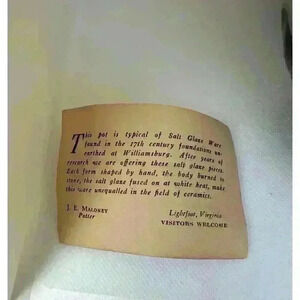 This pot is typical of Salt Glaze Ware
found in the 17th century foundations un-
earthed at Williamsburg. After years of
research we are offering these salt glaze pieces.
Each form shaped by hand, the body burned to
stone, the salt glaze fused on at white heat, make
this ware unequalled in the field of ceramics.
J. E. MALONEY
Potter
Lightfoot, Virginia
VISITORS WELCOME